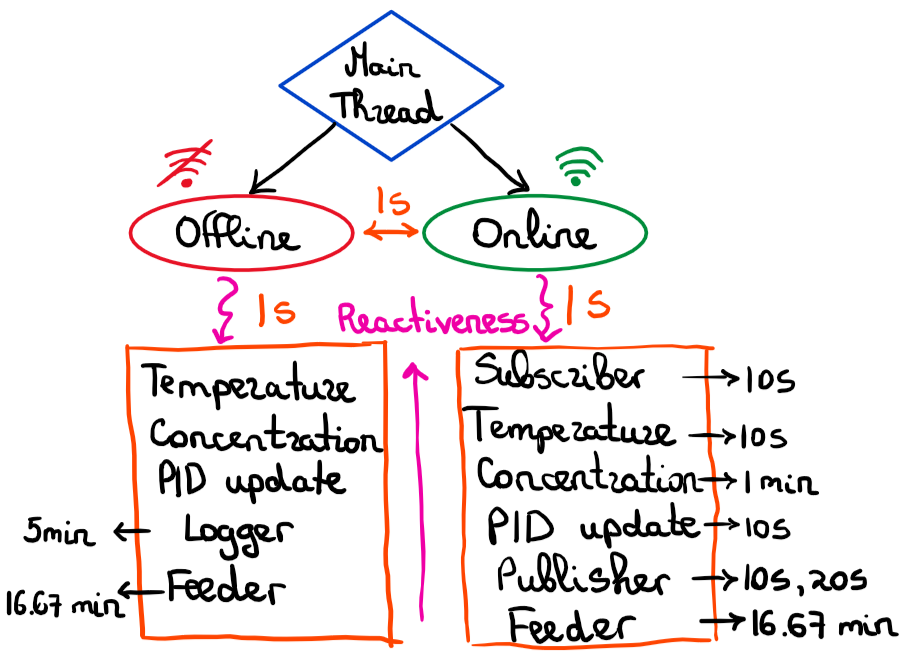 Main
Thread
1s
Offline
Online
1s
Reactiveness
1s
Temperature
Concentration
PID update
5min
Logger
16.67 min
Feeder
Subscriber
10s
Temperature
10s
Concentration
1 min
PID update
10s
Publisher
10s, 20s
Feeder
16.67 min